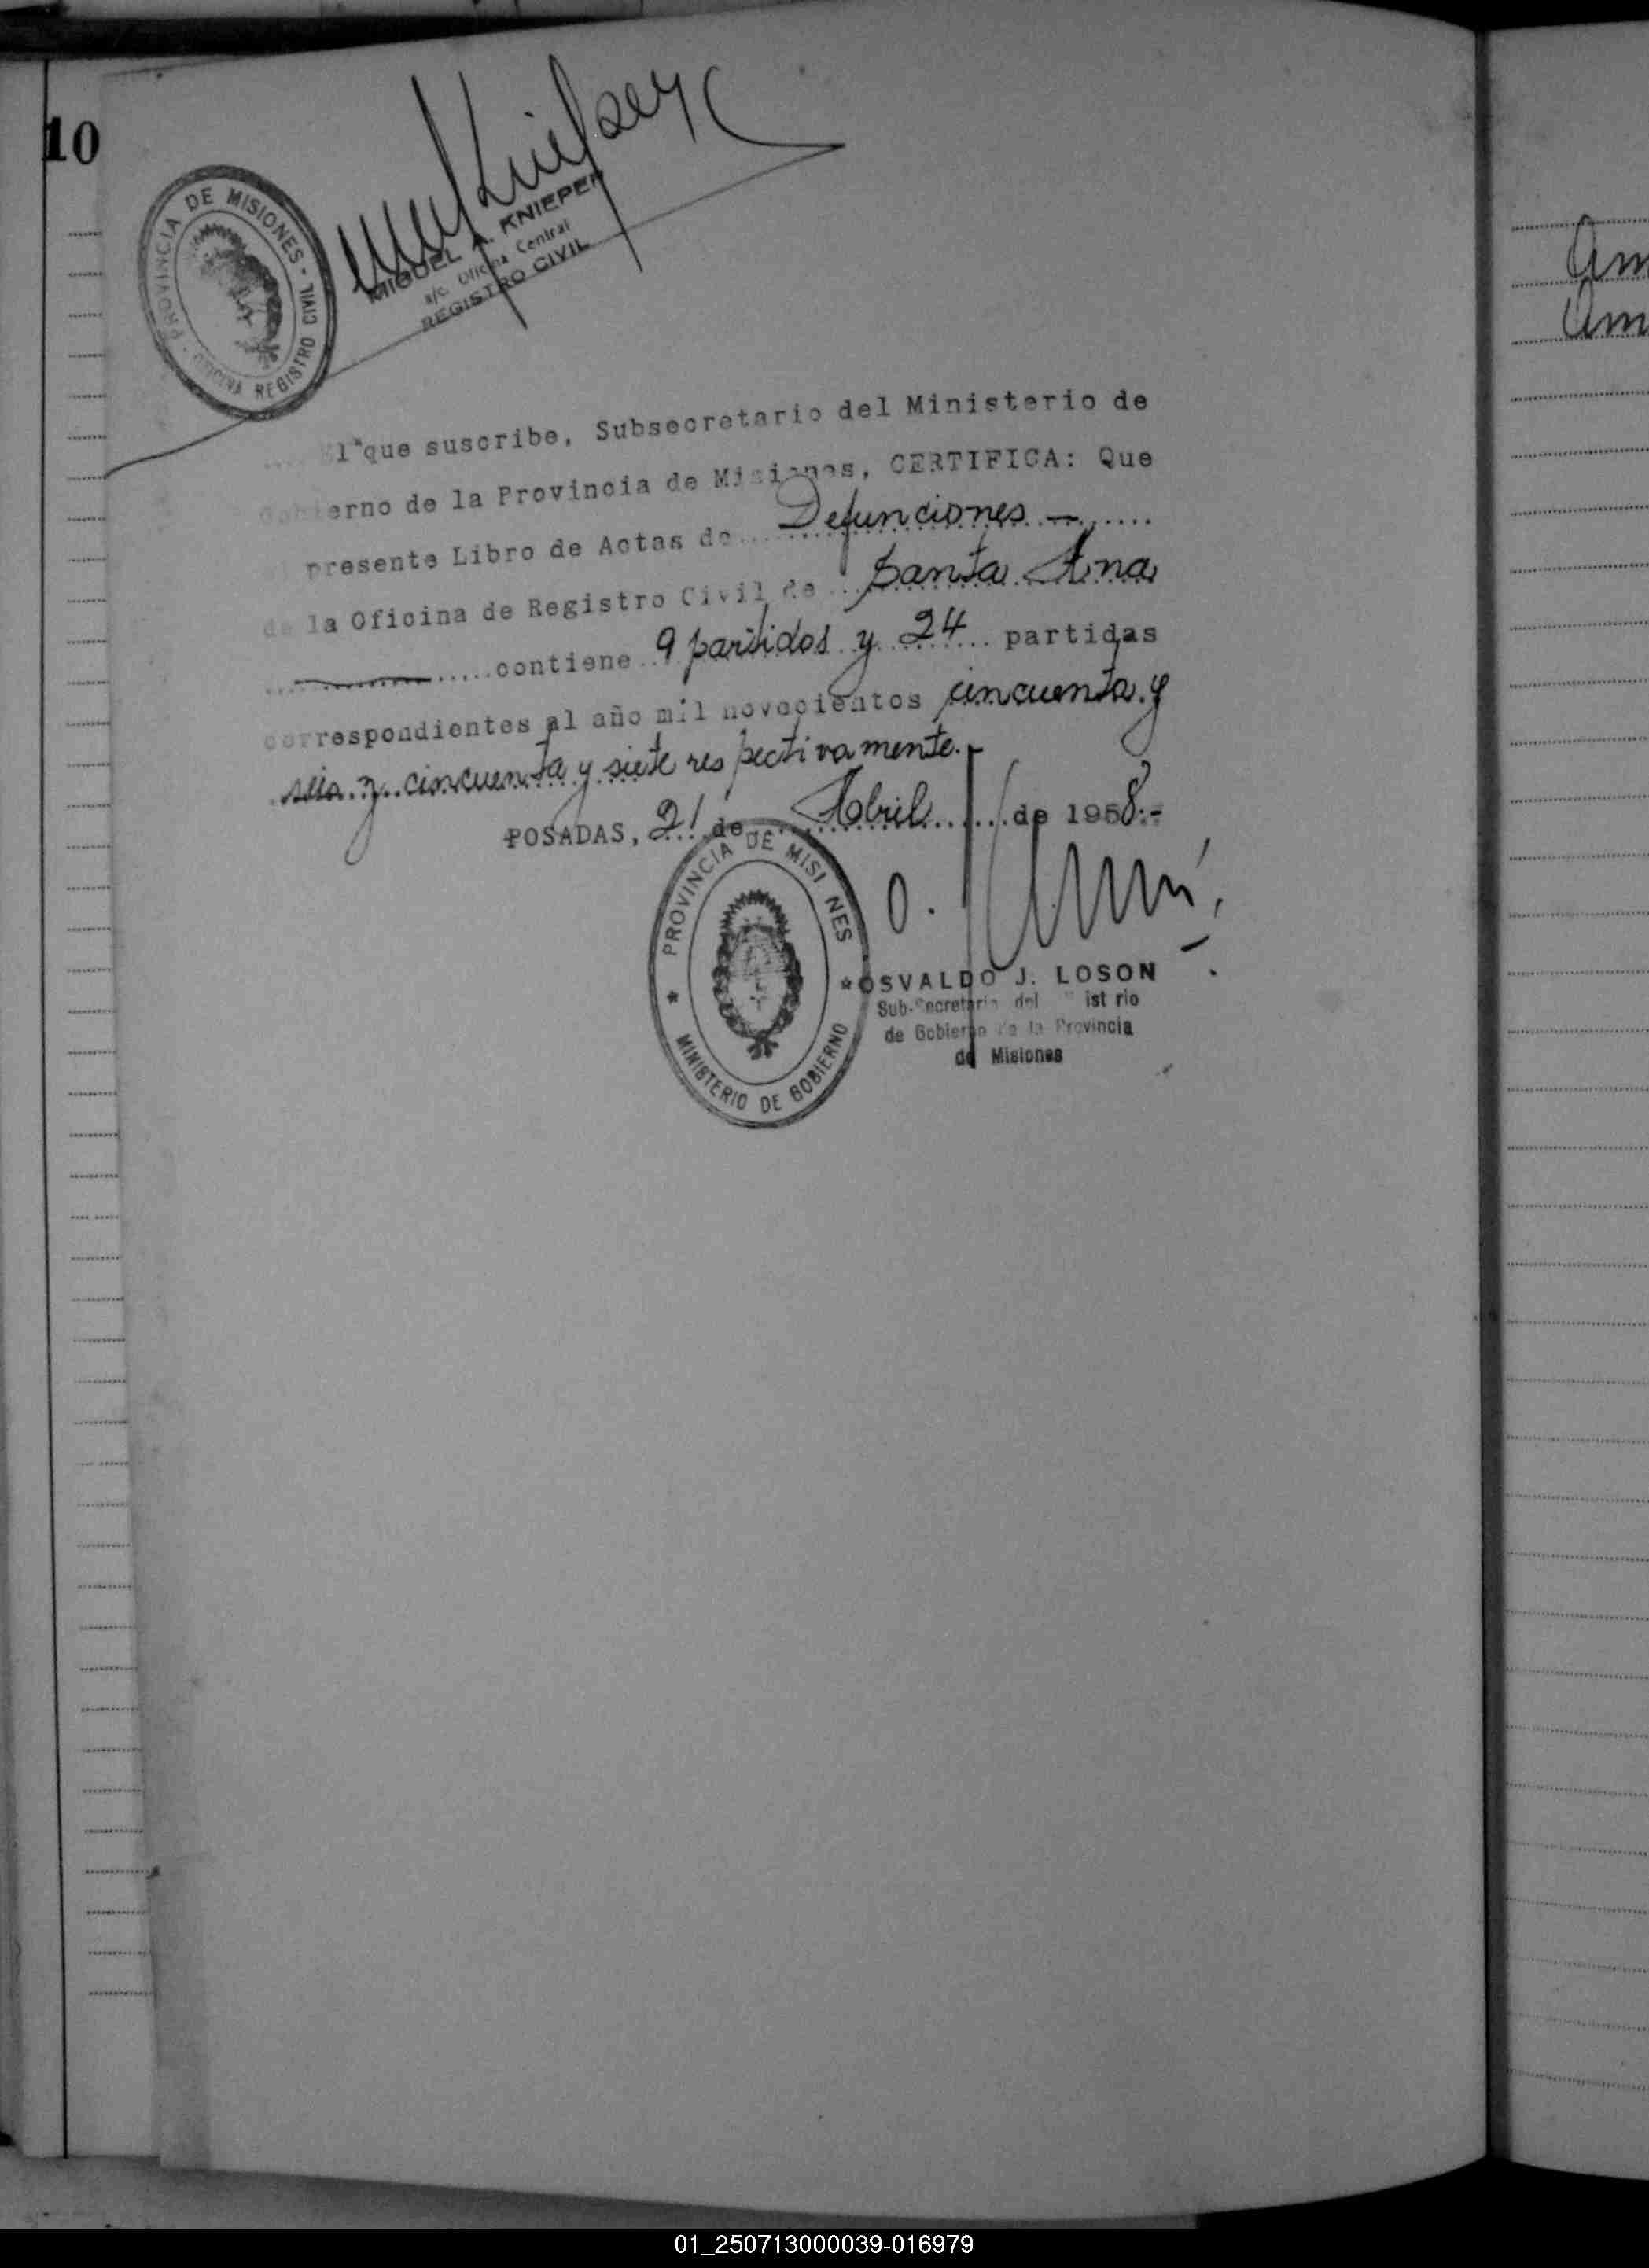 10
PROVINCIA DE MISIONES - OFICINA REGISTRO CIVIL -
MIGUEL A. KNIEPER
a/c. Oficina Central
REGISTRO CIVIL
El que suscribe, Subsecretario del Ministerio de
Gobierno de la Provincia de Misiones, CERTIFICA: Que
presente Libro de Actas de Defunciones -
de la Oficina de Registro Civil de Santa Ana
contiene 9 partidos y 24 partidas
correspondientes al año mil novecientos cincuenta y
seis y cincuenta y siete respectivamente.-
POSADAS, 21 de Abril de 1958.-
PROVINCIA DE MISI NES
MINISTERIO DE GOBIERNO
OSVALDO J. LOSON
Sub-Secretario del ist rio
de Gobierno de la Provincia
de Misiones
01_250713000039-016979